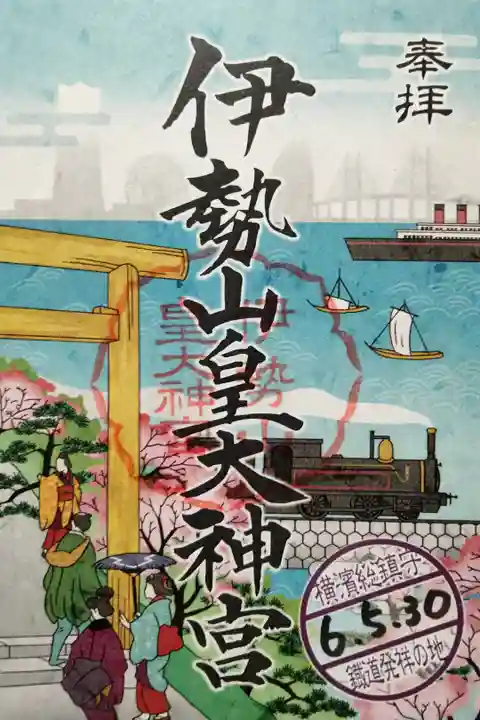 奉拝
伊勢山皇大神宮
伊勢山
皇大神宮
横濱総鎮守
6.5.30
鐵道発祥の地